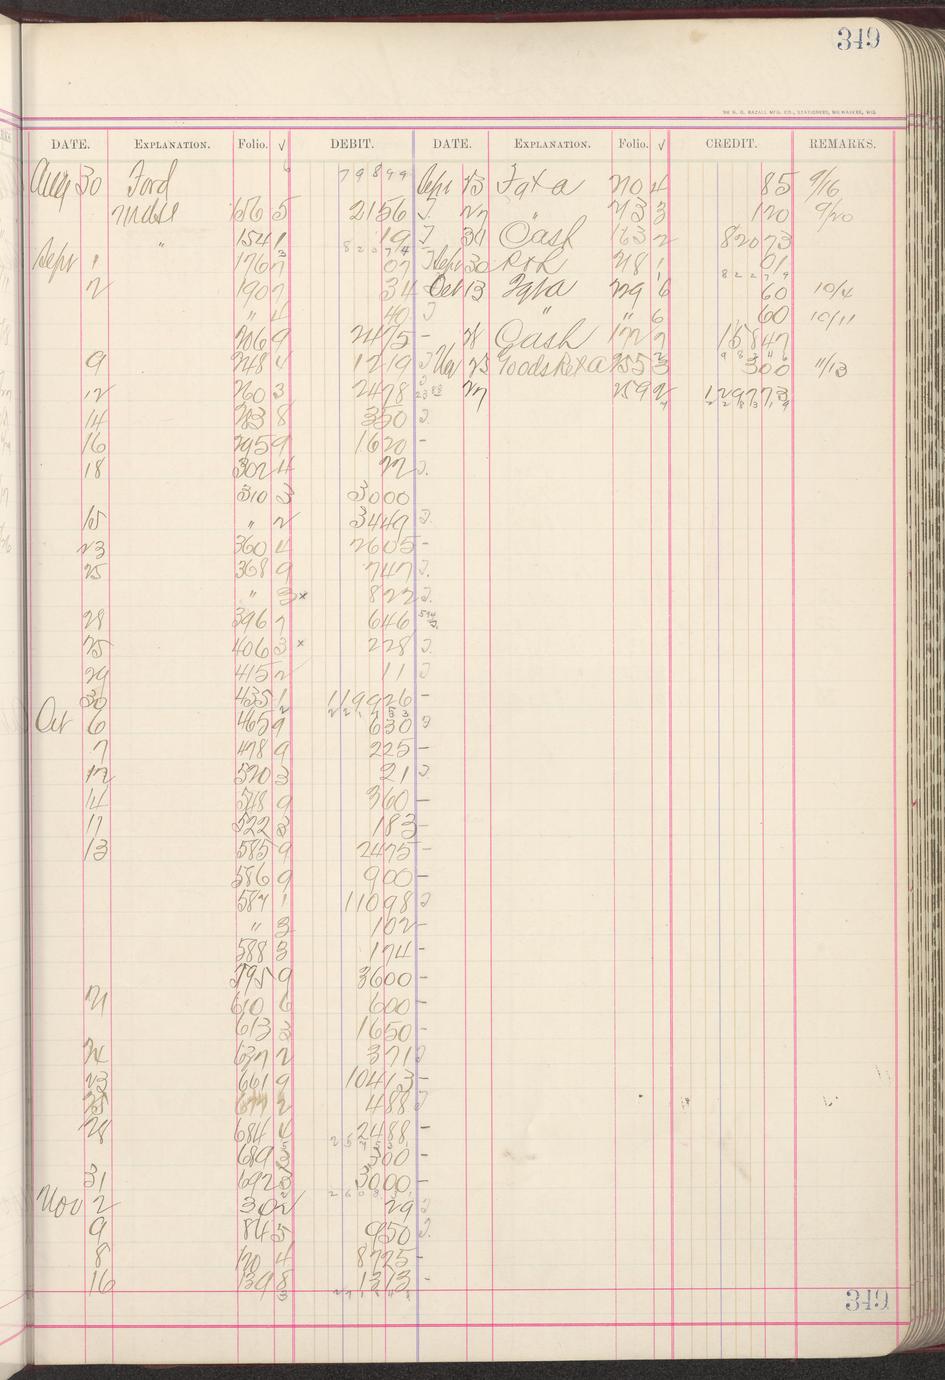 349
DATE. EXPLANATION. Folio. √ DEBIT. DATE. EXPLANATION. Folio. √ CREDIT. REMARKS.
Aug 30 Ford 79899 Sept 13 Frt a 20 4 85 9/6
Mdse 156 5 2156 J. 27 " 43 3 120 9/20
" 154 1 19 J 30 Cash 163 2 82073
Sept 1 176 7 07 J Sept 30 R&R 218 1 01
2 190 7 34 Oct 13 Frt a 229 6 60 10/4
" 4 40 J " " 6 60 10/11
206 9 2475 - 28 Cash 172 7 15847
9 248 4 1219 J Nov 23 Goods Ret a 255 3 300 11/13
12 260 3 2478 J 27 259 2 129773
14 283 8 350 J.
16 295 9 1620 -
18 302 4 22 J.
310 3 3000
15 " 2 3449 J.
23 360 4 2605 -
25 368 9 747 J.
" 3 x 822 J.
28 396 7 646
25 406 3 x 228 J.
29 415 2 11 J
30 435 1 119926 -
Oct 6 465 9 630 J
7 478 9 225 -
12 520 3 21 J.
14 548 9 360 -
11 522 3 183 -
13 585 9 2475 -
586 9 900 -
587 1 11098 J
" 3 102 -
588 3 174 -
595 9 3600 -
21 610 6 600 -
613 3 1650 -
24 637 2 371 J
23 661 9 10413 -
25 677 2 488 J
28 684 4 2488 -
689 3 300 -
31 692 3 3000 -
Nov 2 30 2 29 J
9 84 5 950 J.
8 120 4 8725 -
16 139 8 1313 -
349